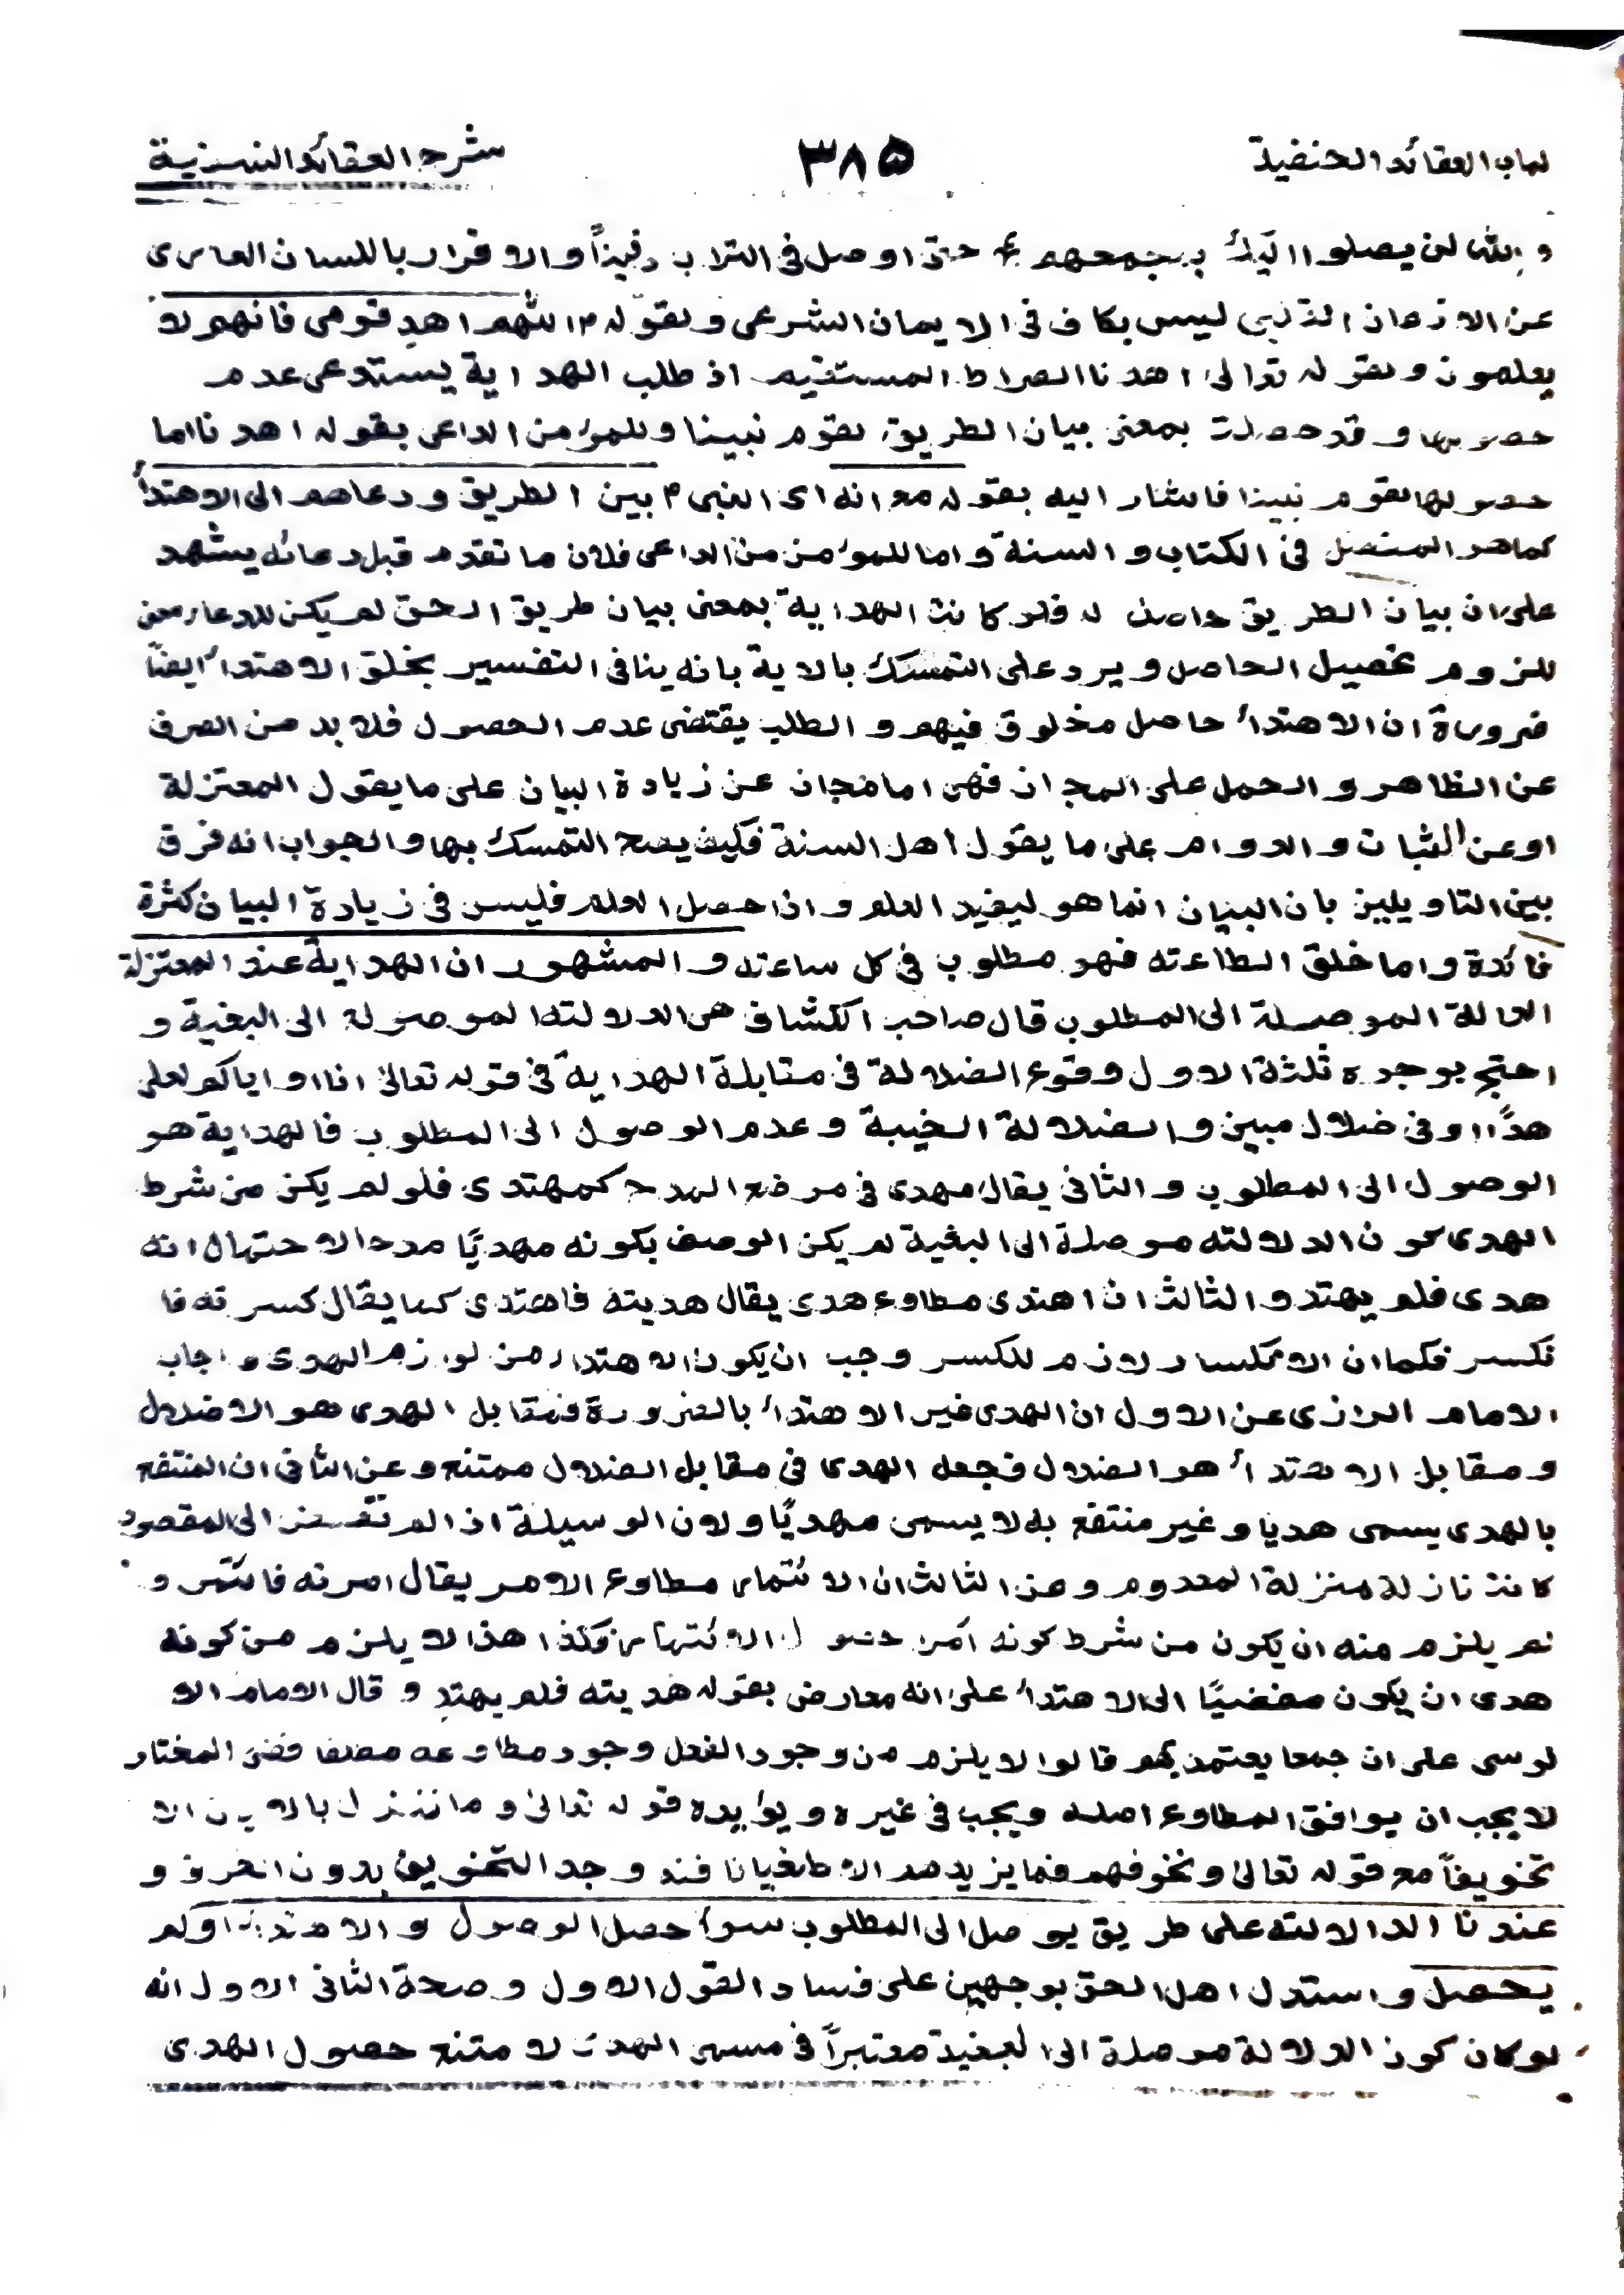 لباب العقائد الحنفية ٣٨٥ شرح العقائد النسفية
والله لن يصلوا اليك بجمعهم ؏ حتى اوصل فى التراب دفيناً والاقرار باللسان العارى
عن الاذعان القلبى ليس بكاف فى الايمان الشرعى ولقوله ۴ اللهم اهدِ قومى فانهم لا
يعلمون ولقوله تعالى اهدنا الصراط المستقيم اذ طلب الهداية يستدعى عدم
حصولها وقد حصلت بمعنى بيان الطريق لقوم نبينا وللمؤمن الداعى بقوله اهدنا اما
حصولها لقوم نبينا فاشار اليه بقوله مع انه اى النبى ۴ بين الطريق ودعاهم الى الاهتداء
كما هو المفصل فى الكتاب والسنة واما للمؤمن من الداعى فلان ما تقدم قبل دعائه يشهد
على ان بيان الطريق حاصل له فلو كانت الهداية بمعنى بيان طريق الحق لم يكن للدعاء معنى
للزوم تحصيل الحاصل ويرد على التمسك بالاية بانه ينافى التفسير بخلق الاهتداء ايضاً
ضرورة ان الاهتداء حاصل مخلوق فيهم والطلب يقتضى عدم الحصول فلا بد من الصرف
عن الظاهر والحمل على المجاز فهى اما مجاز عن زيادة البيان على ما يقول المعتزلة
او عن الثبات والدوام على ما يقول اهل السنة فكيف يصح التمسك بها والجواب انه فرق
بين التاويلين بان البيان انما هو ليفيد العلم واذا حصل العلم فليس فى زيادة البيان كثرة
فائدة واما خلق الطاعته فهو مطلوب فى كل ساعته والمشهور ان الهداية عند المعتزلة
الدالة الموصلة الى المطلوب قال صاحب الكشاف هى الدلالته الموصولة الى البغية و
احتج بوجوه ثلثة الاول وقوع الضلالة فى مقابلة الهداية فى قوله تعالى انا او اياكم لعلى
هدًا او فى ضلال مبين والضلالة الخيبة وعدم الوصول الى المطلوب فالهداية هو
الوصول الى المطلوب والثانى يقال مهدى فى موضع المدح كمهتدى فلو لم يكن من شرط
الهدى كون الدلالته موصلة الى البغية لم يكن الوصف بكونه مهديًا مدحا لاحتمال انه
هدى فلم يهتد والثالث ان اهتدى مطاوع هدى يقال هديته فاهتدى كما يقال كسرته فا
نكسر فكما ان الانكسار لازم للكسر وجب ان يكون الاهتداء من لوازم الهدى واجاب
الامام الرازى عن الاول ان الهدى غير الاهتداء بالضرورة فمقابل الهدى هو الاضلال
ومقابل الاهتداء هو الضلال فجعل الهدى فى مقابل الضلال ممتنع وعن الثانى ان المنتفع
بالهدى يسمى هديا وغير منتفع به لا يسمى مهديًا ولان الوسيلة اذا لم تفض الى المقصود
كانت نازلة منزلة المعدوم وعن الثالث ان الائتمار مطاوع الامر يقال امرته فائتمر و
لم يلزم منه ان يكون من شرط كونه آمرا حصول الائتمار فكذا هذا لا يلزم من كونه
هدى ان يكون مفضيًا الى الاهتداء على انه معارض بقوله هديته فلم يهتدِ وقال الامام الا
لوسى على ان جمعا يعتمد بهم قالوا لا يلزم من وجود الفعل وجود مطاوعه مطلقا ففى المختار
لا يجب ان يوافق المطاوع اصله ويجب فى غيره ويؤيده قوله تعالى وما ننزل بالايات الا
تخويفاً مع قوله تعالى ونخوفهم فما يزيدهم الا طغيانا فقد وجد التخويف بدون الخوف و
عندنا الدالالته على طريق يوصل الى المطلوب سواء حصل الوصول والاهتداء او لم
يحصل واستدل اهل الحق بوجهين على فساد القول الاول وصحة الثانى الاول انه
لو كان كون الدلالة موصلة الى البغية معتبراً فى مسمى الهدى لامتنع حصول الهدى